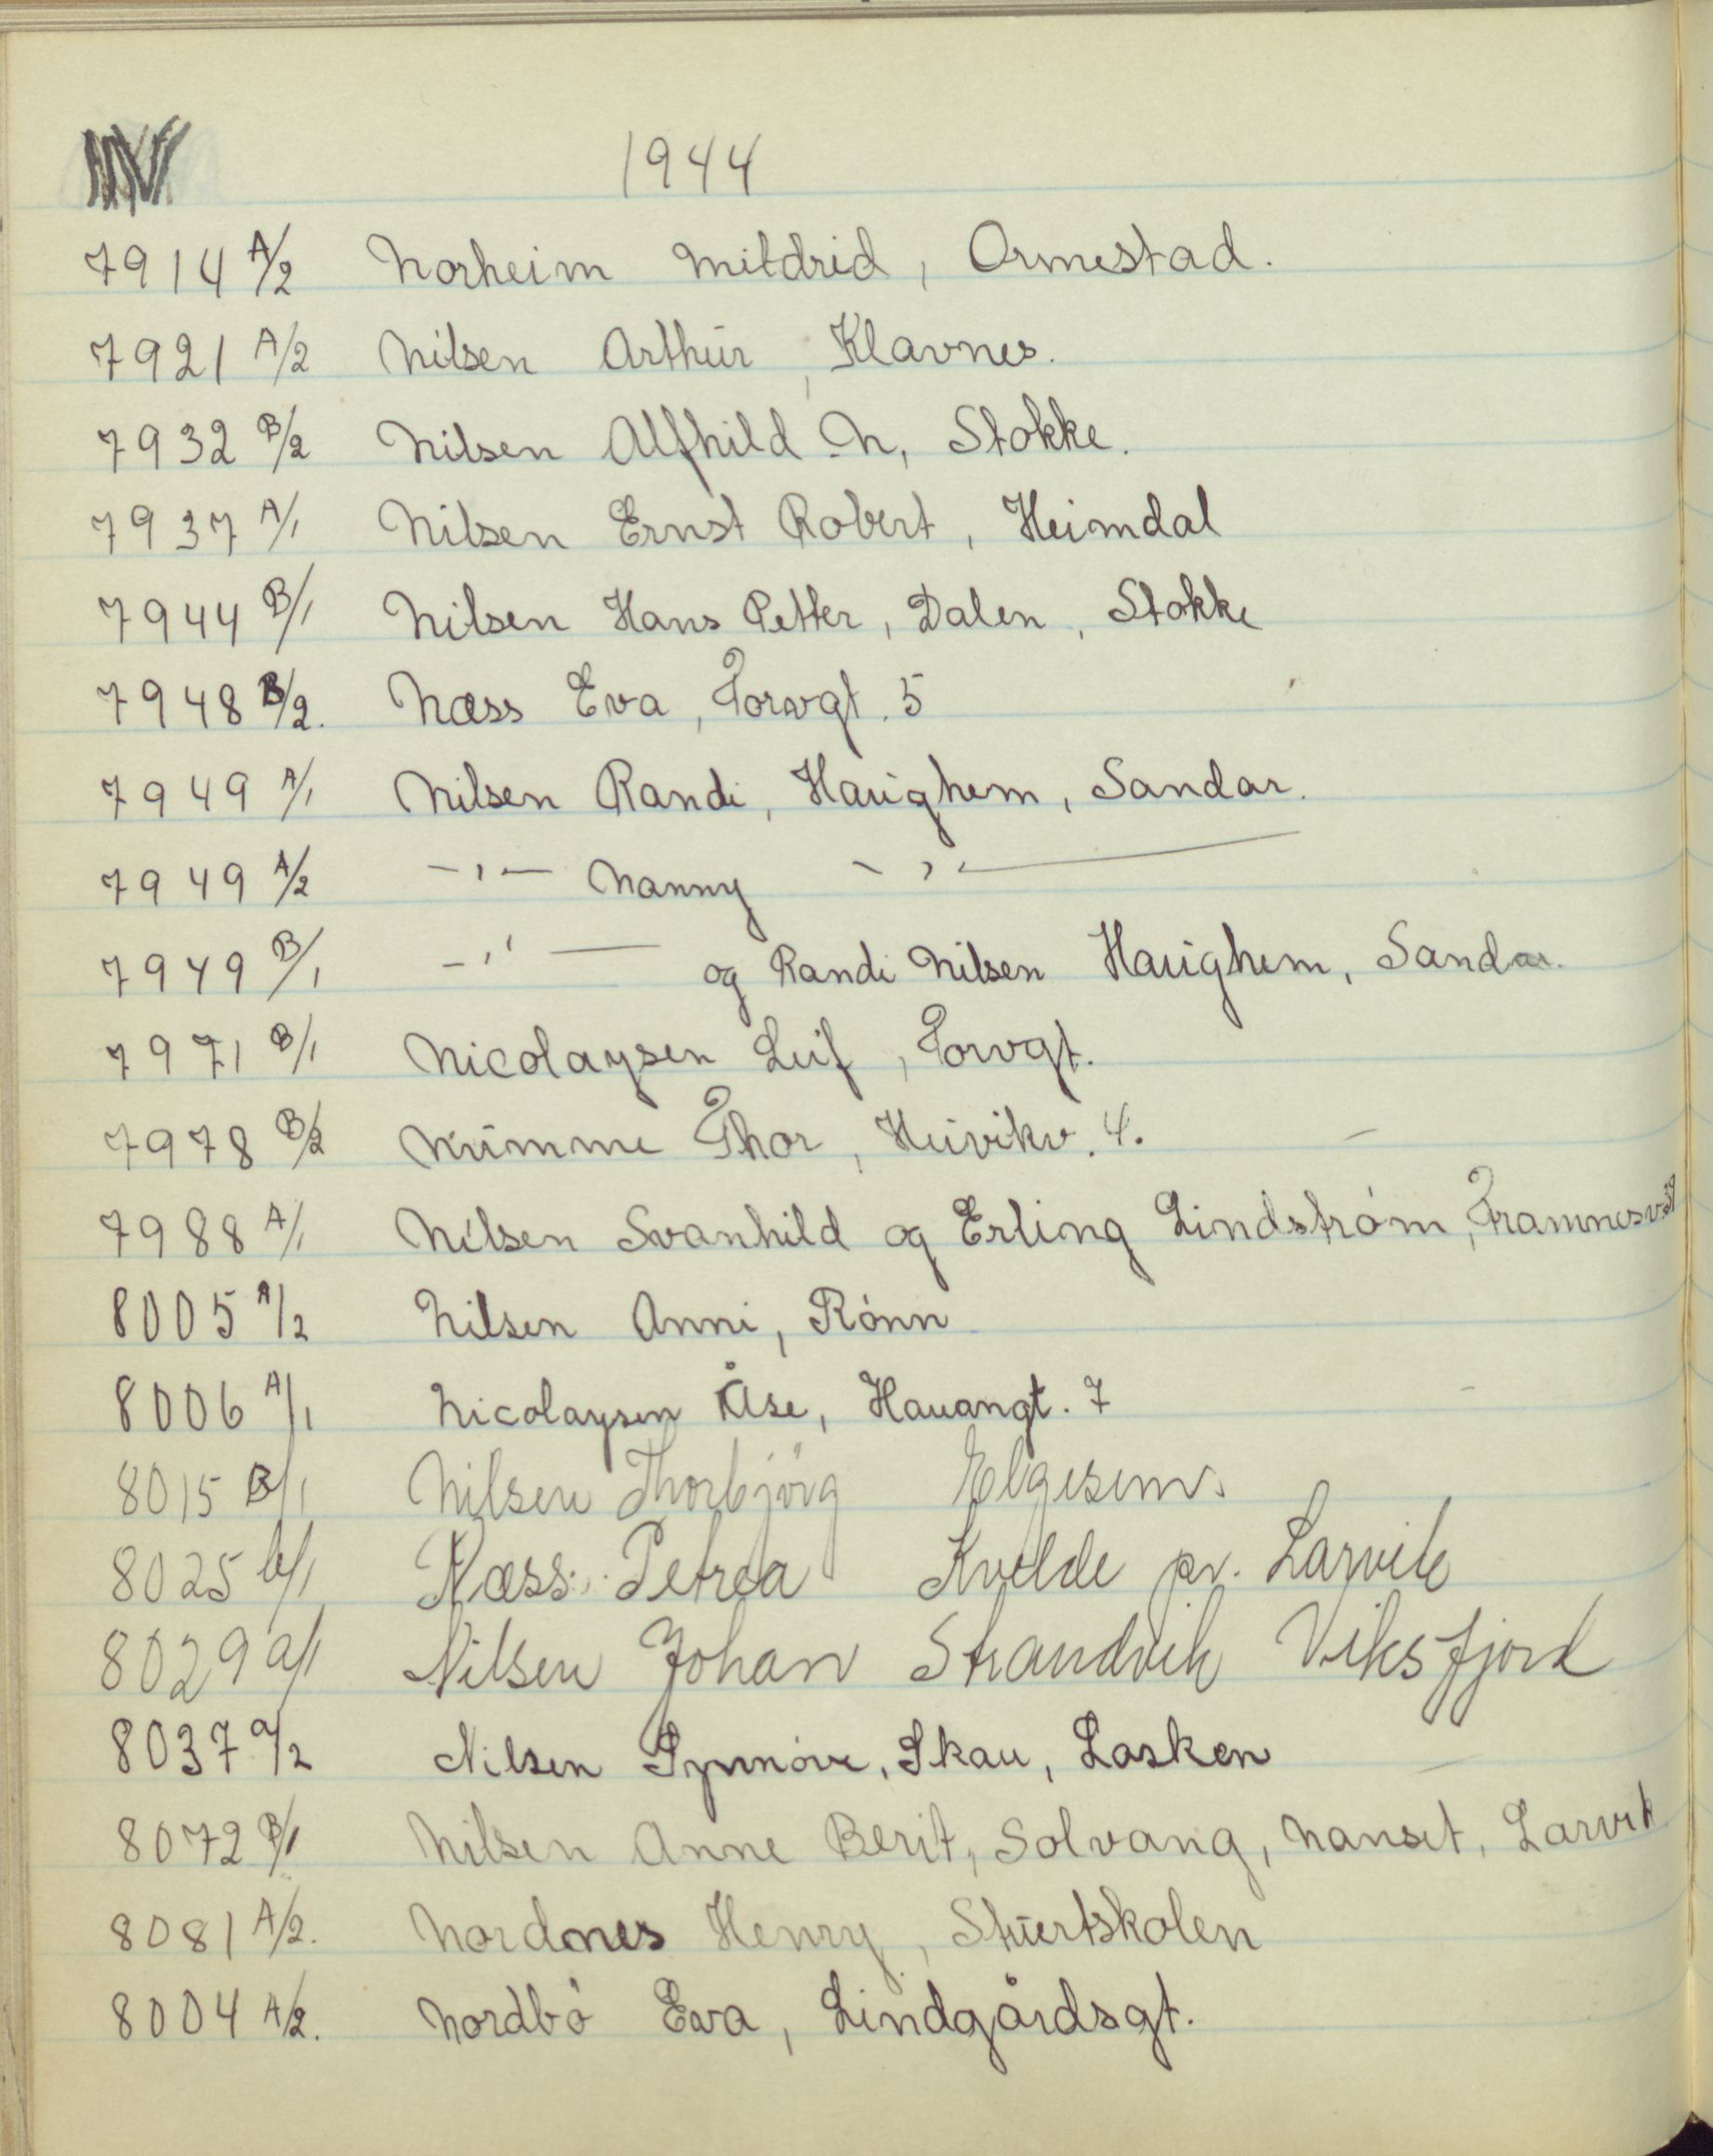 N 1944
7914 A/2 Norheim Mildrid, Ormestad.
7921 A/2 Nilsen Arthur, Klavnes.
7932 B/2 Nilsen Alfhild N, Stokke.
7937 A/1 Nilsen Ernst Robert, Heimdal
7944 B/1 Nilsen Hans Petter, Dalen, Stokke
7948 B/2. Næss Eva, Torvgt. 5
7949 A/1 Nilsen Randi, Haughem, Sandar.
7949 A/2 -,,- Nanny -,,-
7949 B/1 -,,- og Randi Nilsen Haughem, Sandar.
7971 B/1 Nicolaysen Leif, Torvgt.
7978 B/2 Numme Thor, Huvikv. 4.
7988 A/1 Nilsen Svanhild og Erling Lindstrøm, Framnesv.
8005 A/2 Nilsen Anni, Rønn
8006 A/1 Nicolaysen Åse, Hauangt. 7
8015 B/1 Nilsen Thorbjörg Elgesem.
8025 b/1 Næss. Petrea Kvelde pr. Larvik
8029 a/1 Nilsen Johan Strandvik Viksfjord
8037 a/2 Nilsen Synnøve, Skau, Lasken
8072 B/1 Nilsen Anne Berit, Solvang, Nanset, Larvik
8081 A/2. Nordnes Henry, Stuertskolen
8004 A/2. Nordbø Eva, Lindgårdsgt.